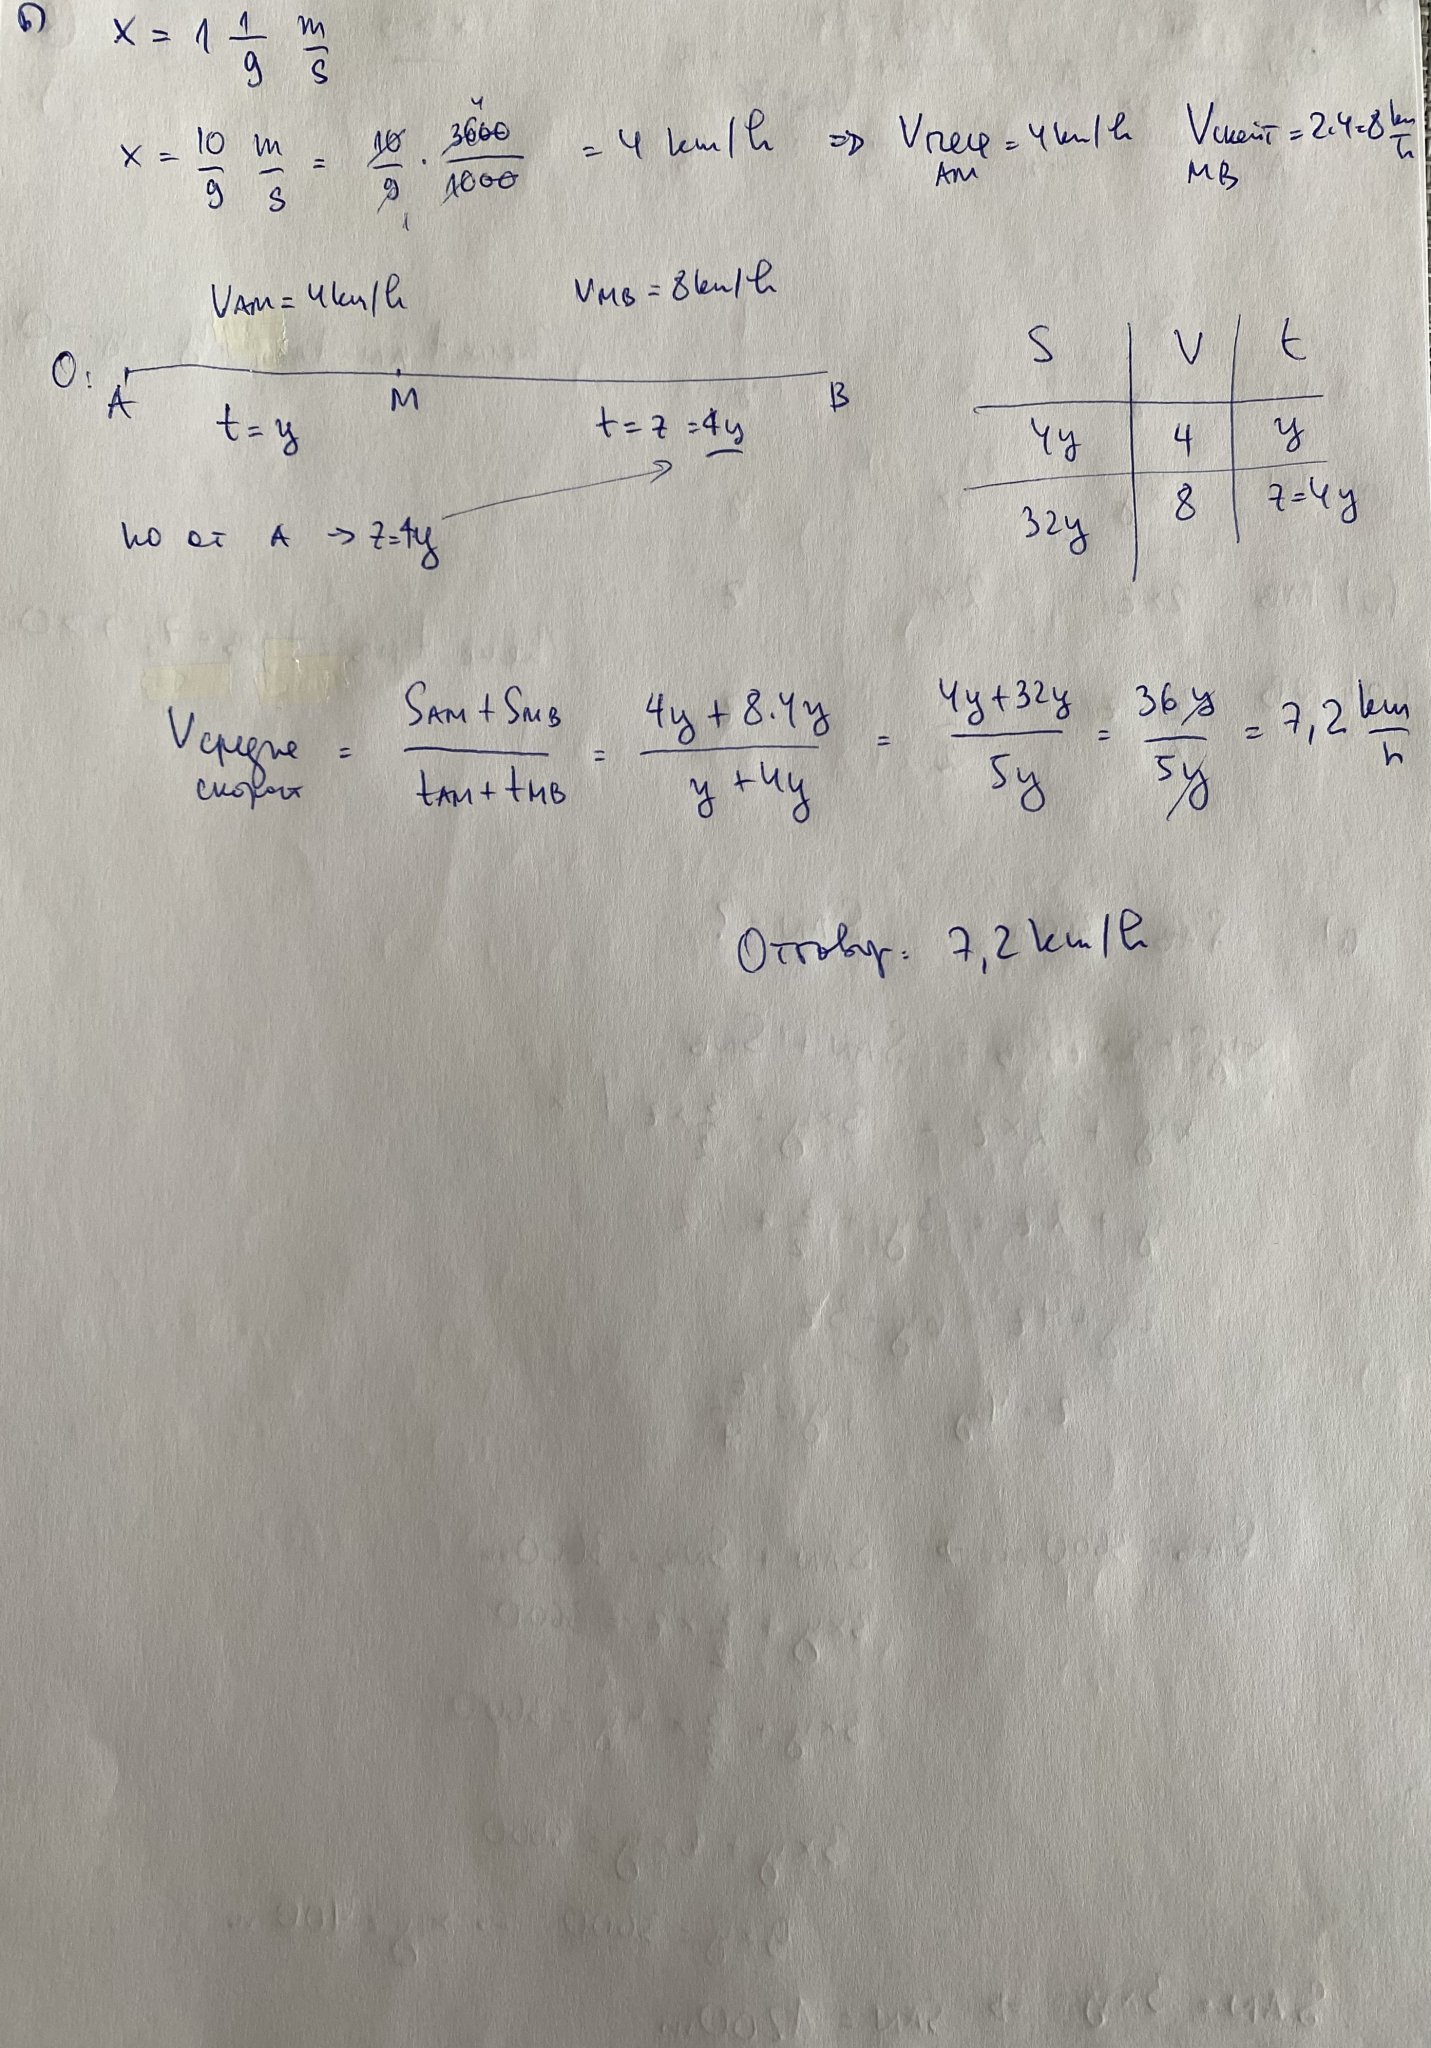 б) x = 1 1/9 m/s
x = 10/9 m/s = 10/9 · 3600/1000 = 4 km/h => Vпеш = 4 km/h Vскейт = 2.4=8 km/h
4
1
AM MB
VAM = 4 km/h VMB = 8 km/h
O: A M B
t = y t = z = 4y
но от A → z=4y
S V t
4y 4 y
32y 8 z=4y
Vсредна скорост = SAM + SMB / tAM + tMB = 4y + 8.4y / y + 4y = 4y+32y / 5y = 36y / 5y = 7,2 km/h
Отговор: 7,2 km/h